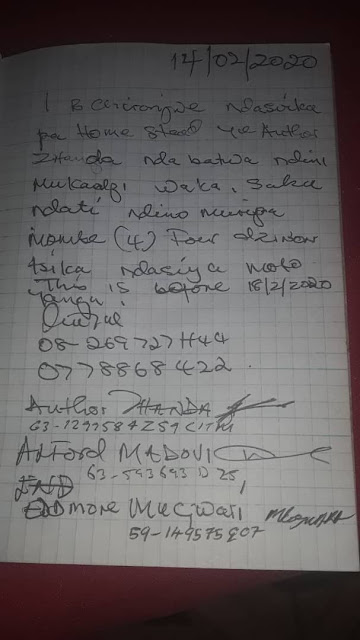 14/02/2020
I B Chironjwe ndasvika
pa Home Stead ye Author
Zhanda nda batwa ndini
Mukadzi waka. Saka
ndati ndino muripa
mombe (4) Four dzinow
tsika ndasiya moto
yangu. This is before 18/2/2020
08-269727H44
0778868422.
Author ZHANDA
63-1291584Z59 CIT M
Alford MADOVI
63-593693 D 25
END
EDmore Mugwari
59-149575E07